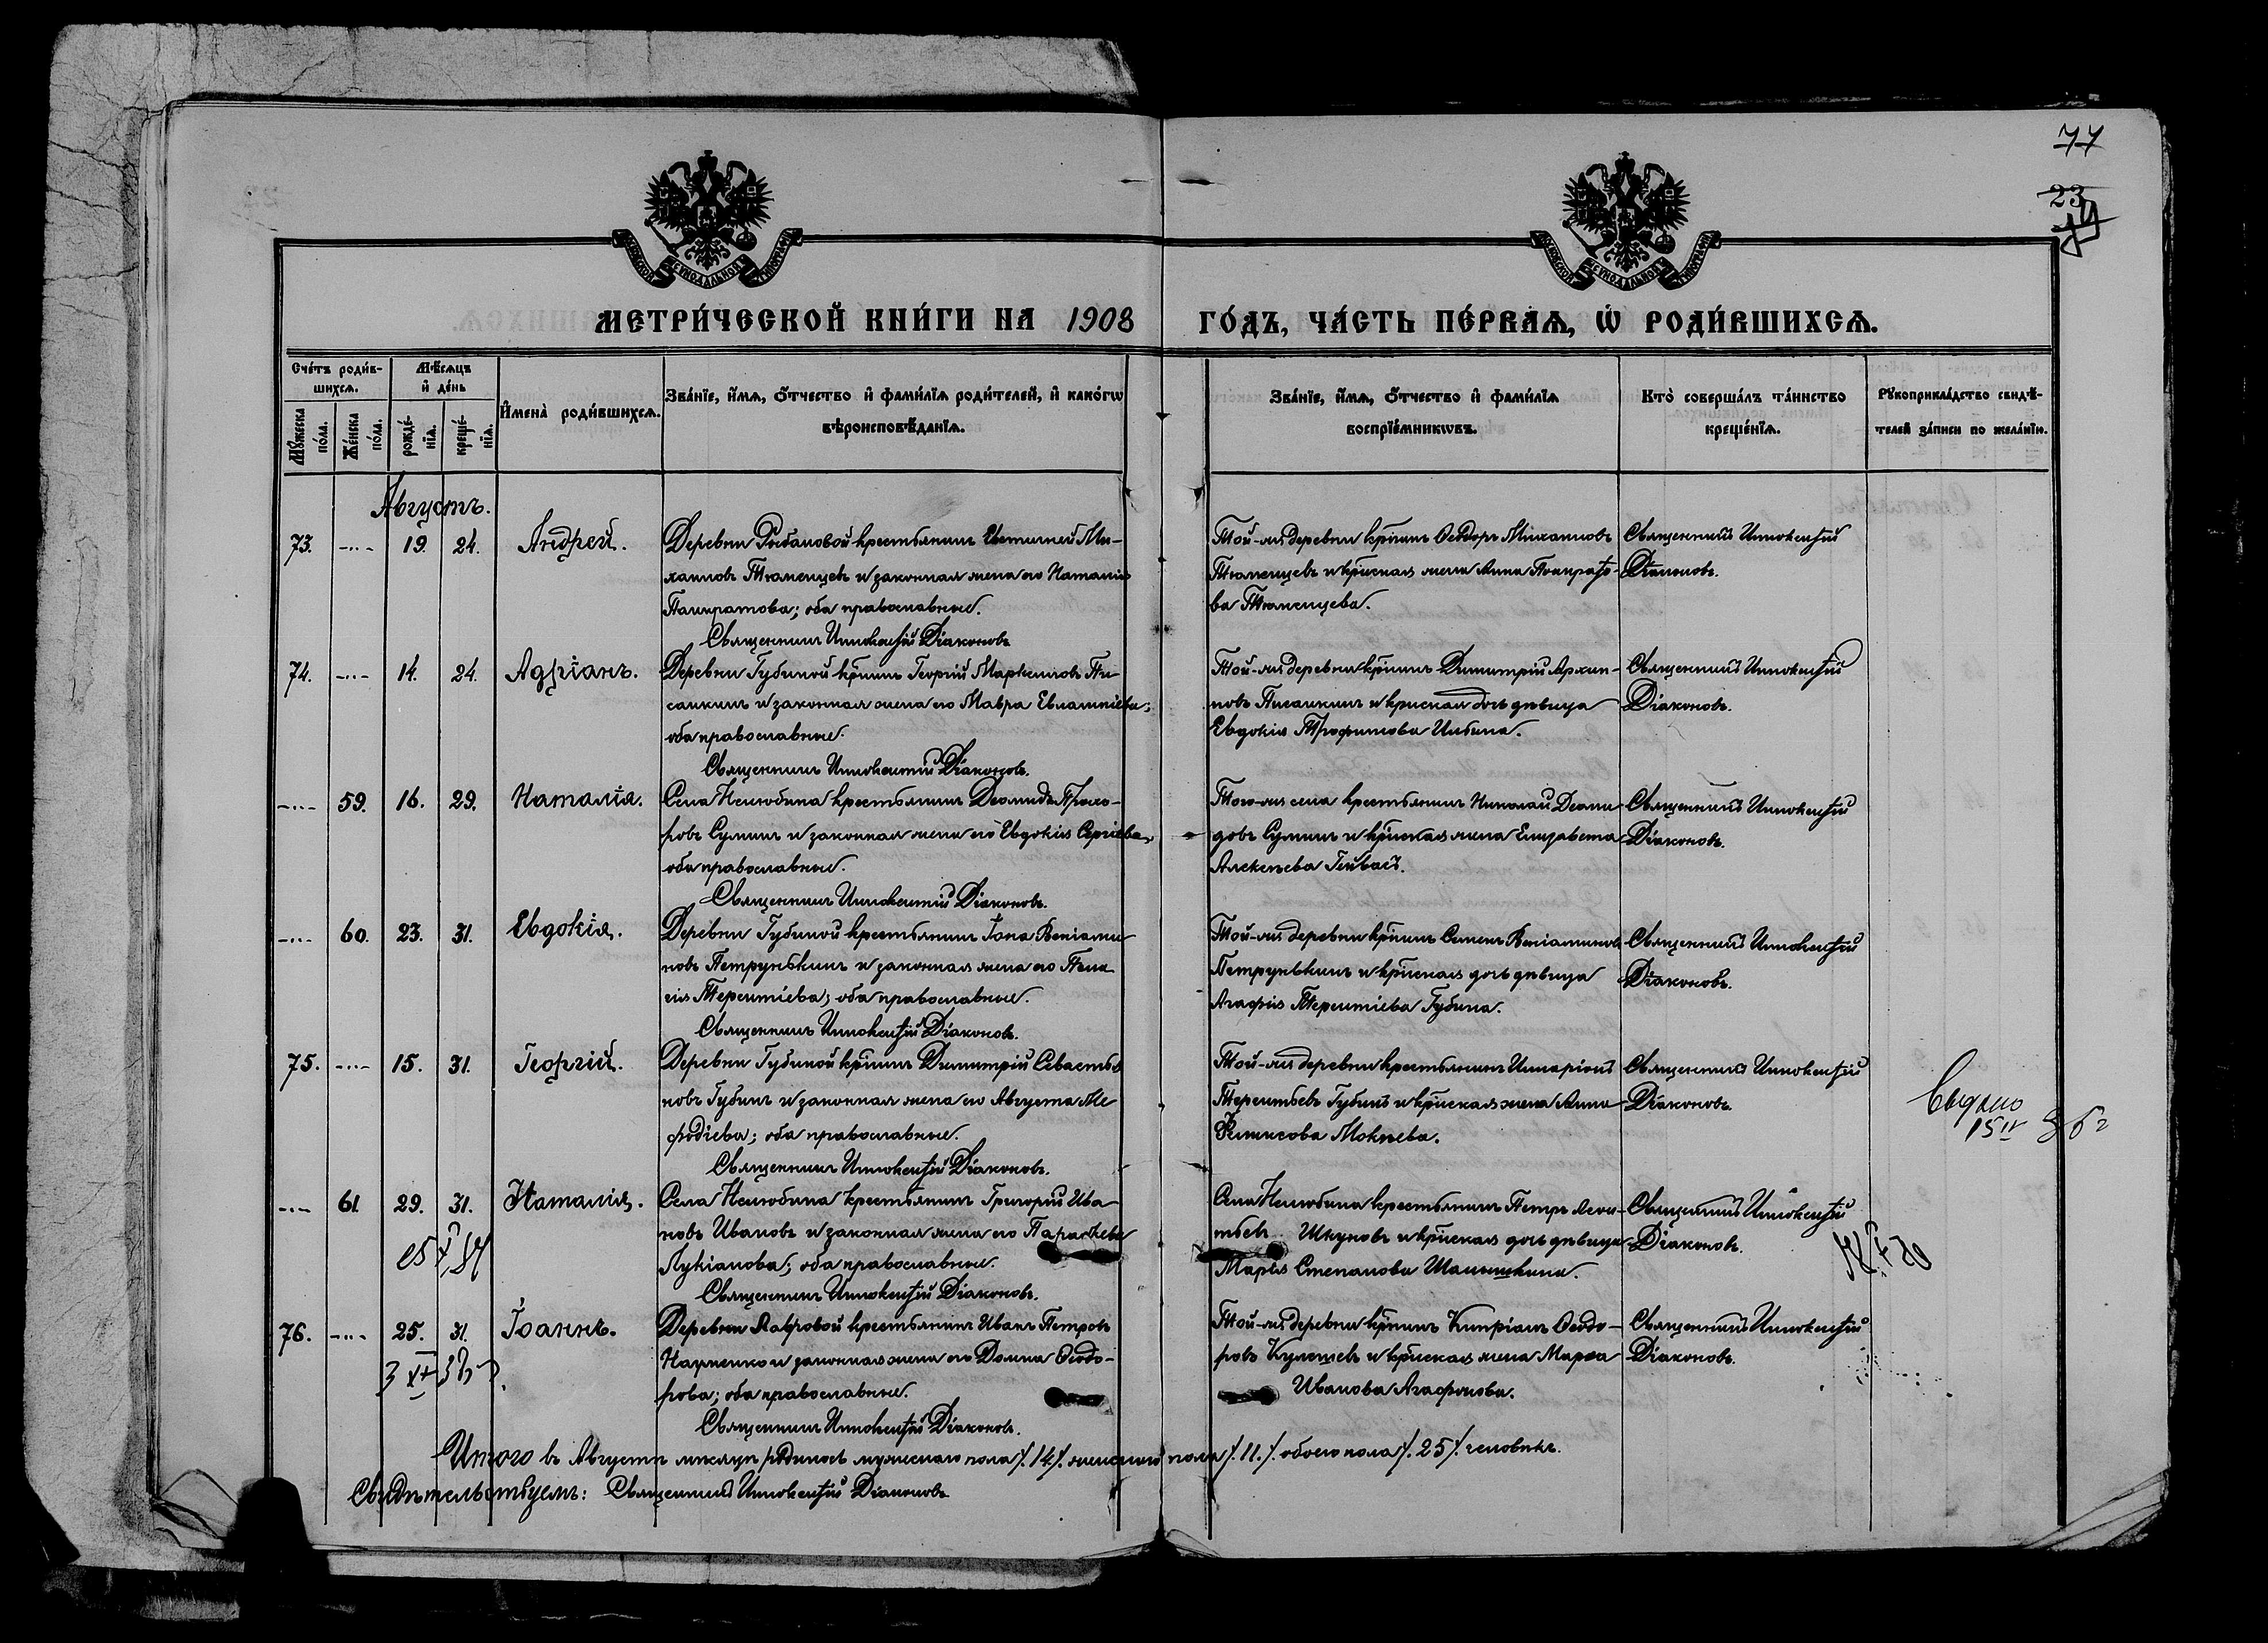 77
23
МЕТРИ́ЧЕСКОЙ КНИ́ГИ НА 1908 ГО́ДЪ, ЧА́СТЬ ПЕ́РВАѦ, Ѡ РОДИ́ВШИХСѦ.
Сче́тъ роди́в-
шихсѧ.
Мꙋ́жеска
по́ла.
Же́нска
по́ла.
Мѣ́сѧцъ
и҆ де́нь
рожде́-
нїѧ.
креще́-
нїѧ.
И҆мена̀ роди́вшихсѧ.
Зва́нїе, и҆́мѧ, ѻ҆́тчество и҆ фами́лїѧ роди́телей, и҆ како́гѡ
вѣроисповѣ́данїѧ.
Зва́нїе, и҆́мѧ, ѻ҆́тчество и҆ фами́лїѧ
воспрїе́мникѡвъ.
Кто̀ соверша́лъ та́инство
креще́нїѧ.
Рꙋкоприкла́дство свидѣ́-
телей за́писи по жела́нїю.
Августъ.
73. 19. 24. Андрей.
Деревни Рыбаловой крестьянинъ Евтихий Ми-
хаиловъ Тюменцевъ и законная жена его Наталія
Панкратова; оба православные.
Священникъ Иннокентій Діаконовъ
Той-же деревни кр-нинъ Ѳеодоръ Михаиловъ
Тюменцевъ и кр-нская жена Анна Панкрато-
ва Тюменцева.
Священникъ Иннокентій
Діаконовъ.
74. 14. 24. Адріанъ.
Деревни Губиной кр-нинъ Георгій Маркеловъ Пи-
санкинъ и законная жена его Мавра Евлампіева;
оба православные.
Священникъ Иннокентій Діаконовъ.
Той-же деревни кр-нинъ Димитрій Архип-
повъ Писанкинъ и кр-нская дочь дѣвица
Евдокія Трофимова Ильина.
Священникъ Иннокентій
Діаконовъ.
59. 16. 29. Наталія.
Села Нелюбина крестьянинъ Деомидъ Прохо-
ровъ Сулинъ и законная жена его Евдокія Сергіева
оба православные.
Священникъ Иннокентій Діаконовъ.
Того-же села крестьянинъ Николай Деоми-
довъ Сулинъ и кр-нская жена Елизавета
Алексѣева
Священникъ Иннокентій
Діаконовъ.
60. 23. 31. Евдокія.
Деревни Губиной крестьянинъ Іона Веніами-
новъ Петрунькинъ и законная жена его Пела-
гія Терентіева; оба православные.
Священникъ Иннокентій Діаконовъ.
Той-же деревни кр-нинъ Семенъ Веніаминовъ
Петрунькинъ и кр-нская дочь дѣвица
Агафія Терентіева Губина.
Священникъ Иннокентій
Діаконовъ.
75. 15. 31. Георгій.
Деревни Губиной кр-нинъ Димитрій Севастья
новъ Губинъ и законная жена его Августа Ме
фодіева; оба православные.
Священникъ Иннокентій Діаконовъ.
Той-же деревни крестьянинъ Илларіонъ
Терентьевъ Губинъ и кр-нская жена Анна
Мокѣева.
Священникъ Иннокентій
Діаконовъ.
Выдано
15 IV 36 г
61. 29. 31. Наталія.
Села Нелюбина крестьянинъ Григорій Ива-
новъ Ивановъ и законная жена его Параскева
Лукіанова; оба православные.
Священникъ Иннокентій Діаконовъ.
Села Нелюбина крестьянинъ Петръ Леон-
тьевъ Шкуновъ и кр-нская дочь дѣвица
Марья Степанова
Священникъ Иннокентій
Діаконовъ.
76. 25. 31. Іоаннъ.
Деревни Лавровой крестьянинъ Иванъ Петровъ
Науменко и законная жена его Домна Ѳеодо-
рова; оба православные.
Священникъ Иннокентій Діаконовъ.
Той-же деревни кр-нинъ Кипріанъ Ѳеодо-
ровъ Кулешевъ и кр-нская жена Марѳа
Иванова Агафонова.
Священникъ Иннокентій
Діаконовъ.
Итого въ Августѣ мѣсяцѣ родилось мужескаго пола /. 14 /. женскаго пола /. 11. /. обоего пола /. 25 /. человѣкъ.
Свидѣтельствуемъ: Священникъ Иннокентій Діаконовъ